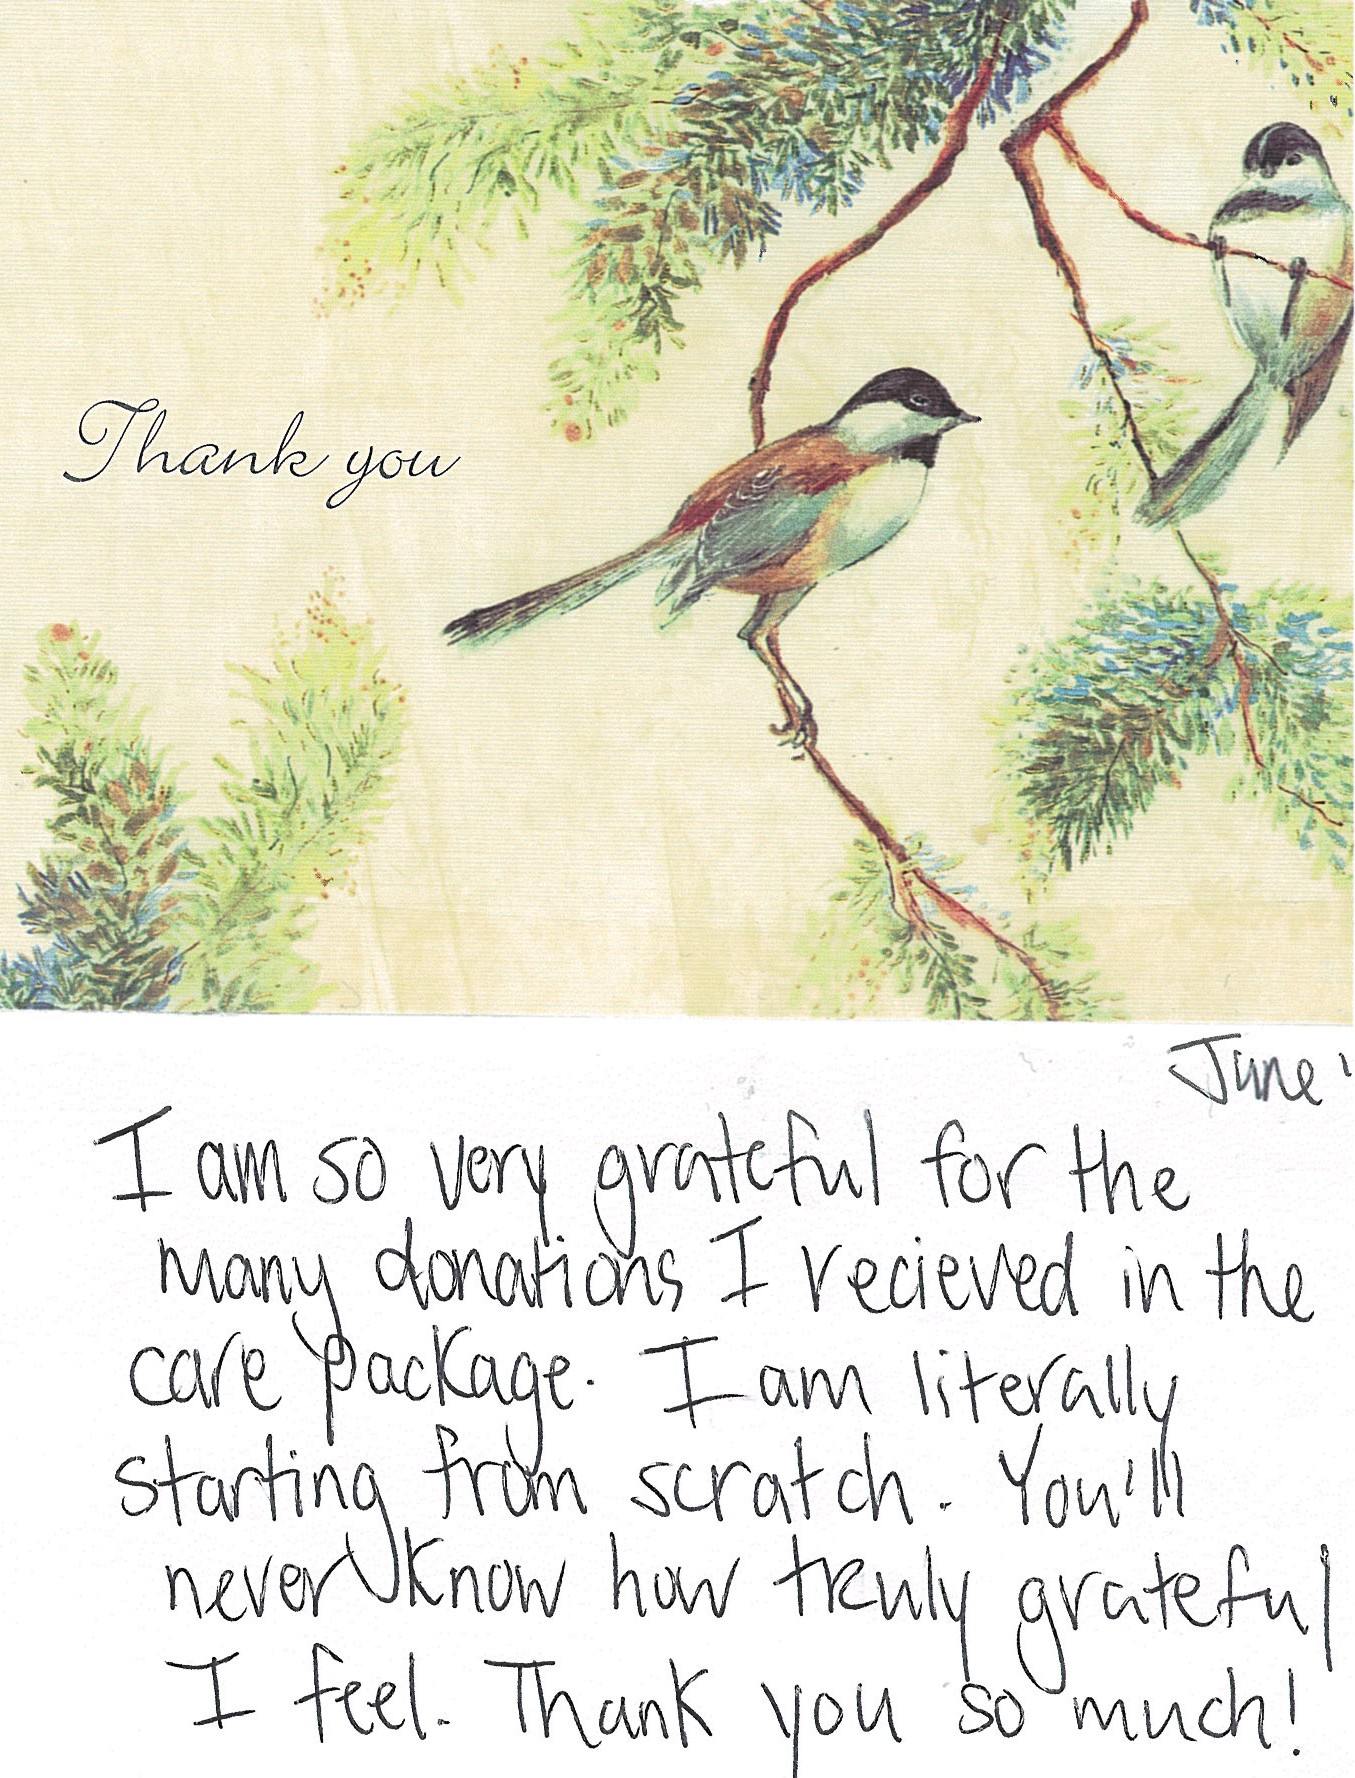 Thank you
June '
I am so very grateful for the
many donations I recieved in the
care package. I am literally
starting from scratch. You'll
never know how truly grateful
I feel. Thank you so much!